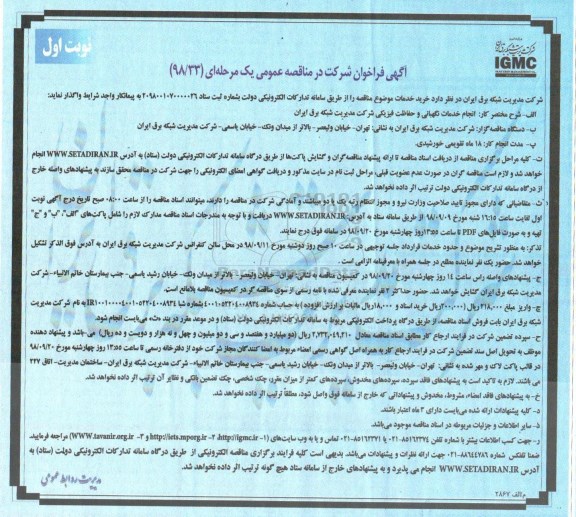 نوبت اول
شرکت مدیریت شبکه برق ایران
IGMC
آگهی فراخوان شرکت در مناقصه عمومی یک مرحله‌ای (۹۸/۳۳)
شرکت مدیریت شبکه برق ایران در نظر دارد خرید خدمات موضوع مناقصه را از طریق سامانه تدارکات الکترونیکی دولت بشماره ثبت ستاد ۲۰۹۸۰۰۱۰۷۰۰۰۰۰۲۶ به پیمانکار واجد شرایط واگذار نماید:
الف- شرح مختصر کار: انجام خدمات نگهبانی و حفاظت فیزیکی شرکت مدیریت شبکه برق ایران
ب- دستگاه مناقصه‌گزار: شرکت مدیریت شبکه برق ایران به نشانی: تهران- خیابان ولیعصر- بالاتر از میدان ونک- خیابان یاسمی- شرکت مدیریت شبکه برق ایران
پ- مدت انجام کار: ۱۸ ماه تقویمی خورشیدی.
ت- کلیه مراحل برگزاری مناقصه از دریافت اسناد مناقصه تا ارائه پیشنهاد مناقصه‌گران و گشایش پاکت‌ها از طریق درگاه سامانه تدارکات الکترونیکی دولت (ستاد) به آدرس WWW.SETADIRAN.IR انجام
خواهد شد و لازم است مناقصه گران در صورت عدم عضویت قبلی، مراحل ثبت نام در سایت مذکور و دریافت گواهی امضای الکترونیکی را جهت شرکت در مناقصه محقق سازند به پیشنهادهای واصله خارج
از درگاه سامانه تدارکات الکترونیکی دولت ترتیب اثر داده نخواهد شد.
ث- متقاضیانی که دارای مجوز تایید صلاحیت وزارت نیرو و مجوز انتظام رتبه یک یا دو میباشند، و آمادگی شرکت در مناقصه را دارند، میتوانند اسناد مناقصه را از ساعت ۰۸:۰۰ صبح تاریخ درج آگهی نوبت
اول لغایت ساعت ۱۶:۱۵ شنبه مورخ ۹۸/۰۹/۰۹ از طریق سامانه ستاد به آدرس: WWW.SETADIRAN.IR دریافت و با توجه به مندرجات اسناد مناقصه مدارک لازم را شامل پاکت‌های "الف"، "ب" و "ج"
تهیه و به صورت فایل‌های PDF تا ساعت ۱۳:۵۵ روز چهارشنبه مورخ ۹۸/۰۹/۲۰ در سامانه فوق درج نمایند.
تذکر: به منظور تشریح موضوع و حدود خدمات قرارداد جلسه توجیهی در ساعت ۱۰ صبح روز دوشنبه مورخ ۹۸/۰۹/۱۱ در محل سالن کنفرانس شرکت مدیریت شبکه برق ایران به آدرس فوق الذکر تشکیل
خواهد شد. حضور یک نفر نماینده مطلع در جلسه همراه با معرفینامه الزامی است.
ج- پیشنهادهای واصله راس ساعت ۱۴ روز چهارشنبه مورخ ۹۸/۰۹/۲۰ در کمیسیون مناقصه به نشانی: تهران- خیابان ولیعصر- بالاتر از میدان ونک- خیابان رشید یاسمی- جنب بیمارستان خاتم الانبیاء- شرکت
مدیریت شبکه برق ایران گشایش خواهد شد. حضور حداکثر ۲ نفر نماینده معرفی شده با نامه رسمی از سوی مناقصه گر در کمیسیون مناقصه بلامانع است.
چ- واریز مبلغ ۲۱۸.۰۰۰ ریال (۲۰۰.۰۰۰ ریال خرید اسناد و ۱۸.۰۰۰ ریال مالیات بر ارزش افزوده) به حساب شماره به نام شرکت مدیریت
شبکه برق ایران بابت فروش اسناد مناقصه، از طریق درگاه پرداخت الکترونیکی مربوط به سامانه تدارکات الکترونیکی دولت (ستاد) و در موعد مقرر در بند «ث» می‌بایست انجام شود.
ح- سپرده تضمین شرکت در فرایند ارجاع کار مطابق اسناد مناقصه معادل ۲.۷۳۲.۰۴۹.۲۱۰ ریال (دو میلیارد و هفتصد و سی و دو میلیون و چهل و نه هزار و دویست و ده ریال) می‌باشد و پیشنهاد دهنده
موظف به تحویل اصل سند تضمین شرکت در فرایند ارجاع کار به همراه اصل گواهی رسمی امضاء مربوط به امضا کنندگان مجاز شرکت خود از دفترخانه رسمی تا ساعت ۱۳:۵۵ روز چهارشنبه مورخ ۹۸/۰۹/۲۰
در قالب پاکت لاک و مهر شده به نشانی: تهران- خیابان ولیعصر- بالاتر از میدان ونک- خیابان رشید یاسمی- جنب بیمارستان خاتم الانبیاء- شرکت مدیریت شبکه برق ایران- ساختمان مدیریت- اتاق ۲۲۷
می باشند. لازم به تاکید است به پیشنهادهای فاقد سپرده، سپرده‌های مخدوش، سپرده‌های کمتر از میزان مقرر، چک شخصی، چک تضمین بانکی و نظایر آن ترتیب اثر داده نخواهد شد.
خ- به پیشنهادهای فاقد امضاء، مشروط، مخدوش و پیشنهاداتی که خارج از سامانه فوق واصل شود، مطلقاً ترتیب اثر داده نخواهد شد.
د- کلیه پیشنهادات ارائه شده می‌بایست دارای ۳ ماه اعتبار باشند.
ذ- سایر اطلاعات و جزئیات مربوطه در اسناد مناقصه موجود می‌باشد.
ر- جهت کسب اطلاعات بیشتر با شماره تلفن ۸۵۱۶۲۳۷۴-۰۲۱ یا ۸۵۱۶۲۳۷۱-۰۲۱ تماس و یا به وب سایت‌های (۱- http://igmc.ir ۲- http://iets.mporg.ir و ۳- WWW.tavanir.org.ir) مراجعه فرمایید.
ضمنا تلفکس شماره ۸۸۶۴۴۷۸۶-۰۲۱ جهت ارائه نظرات و پیشنهادات می‌باشد. بدیهی است کلیه فرایند برگزاری مناقصه الکترونیکی از طریق درگاه سامانه تدارکات الکترونیکی دولت (ستاد) به
آدرس WWW.SETADIRAN.IR انجام می پذیرد و به پیشنهادهای خارج از سامانه ستاد هیچ گونه ترتیب اثر داده نخواهد شد.
مدیریت روابط عمومی
م‌الف ۲۸۶۷